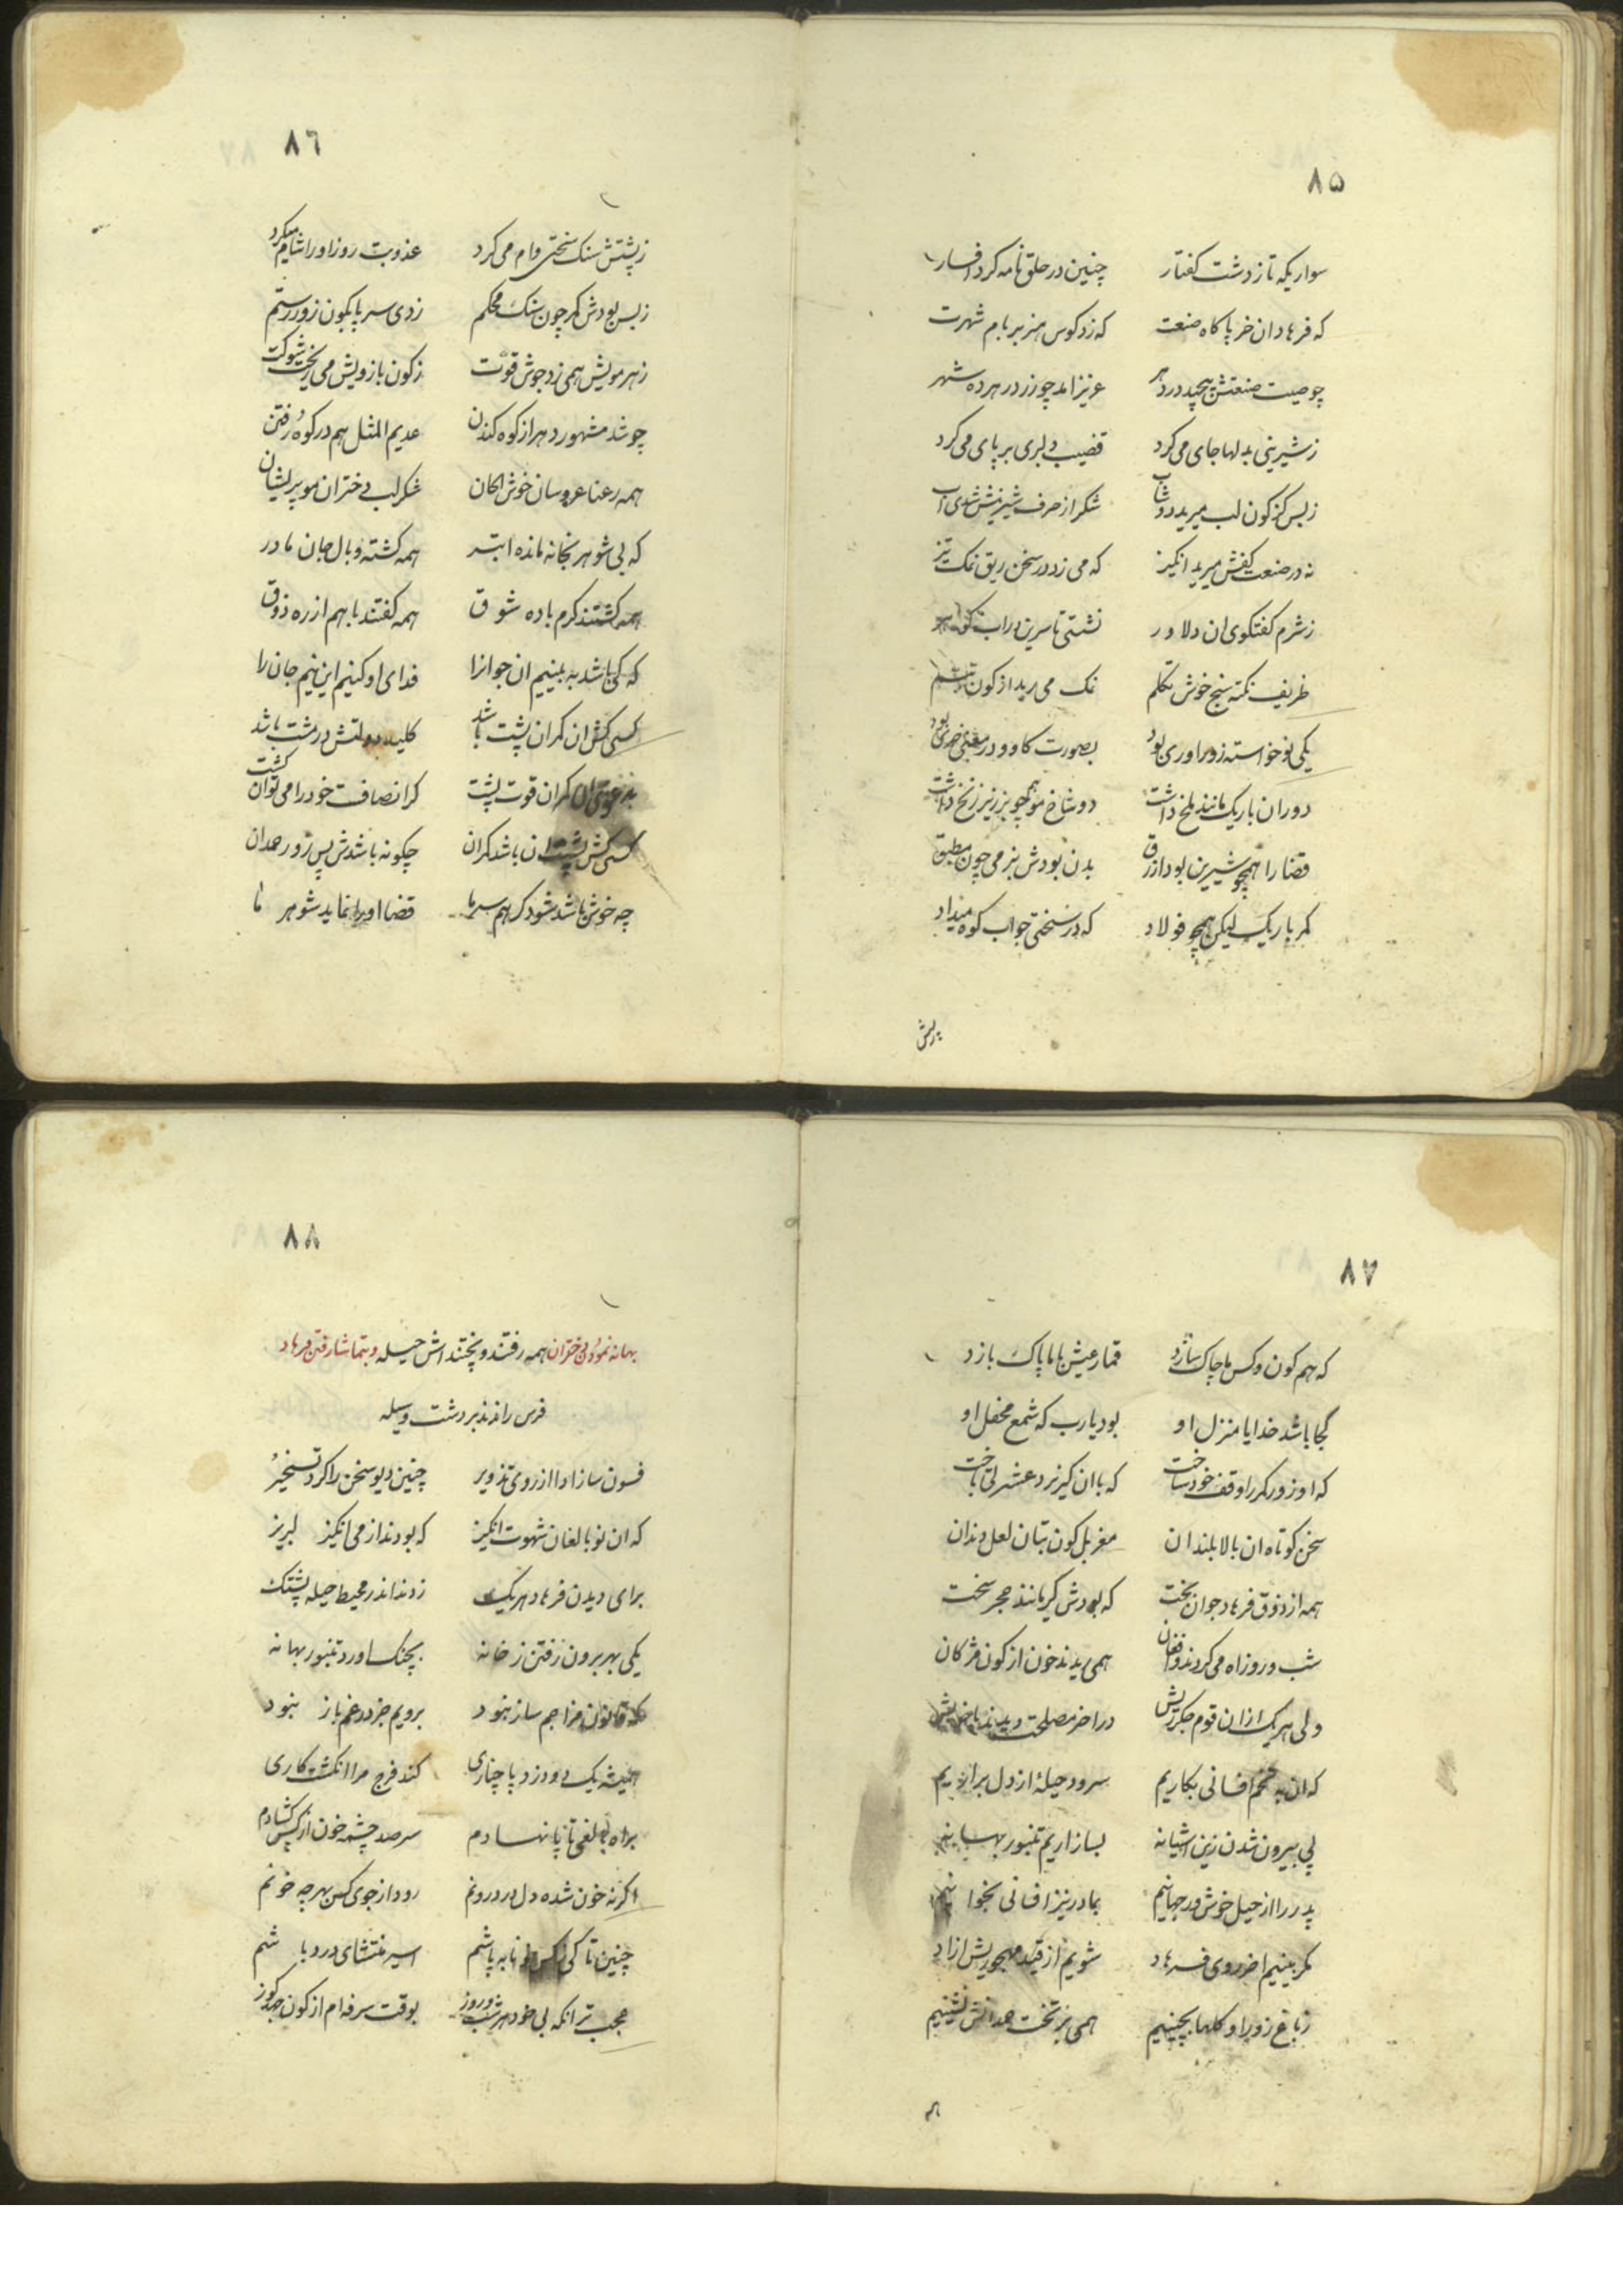 ۸۵
سوار یکه تاز دشت کفتار چنین در حلق نامه کرد افسار
که فرهاد ان خر پا کاه صنعت که زد کوس هنر بر بام شهرت
چو صیت صنعتش پیچید در دهر عزیز امد چو زر در هر ده شهر
ز شیرینی بدلها جای می کرد قضیب دلبری بر پای می کرد
ز بس کز کون لب میرید دوشاب شکر از حرف شیرینش شدی اب
نه در صنعت کفش میرید انکیز که می زد در سخن ریق نمک تیز
ز شرم کفتکوی ان دلاور نشستی تا سرین در اب
ظریف نکته سنج خوش تکلم نمک می رید از کون تبسم
یکی نوخواسته زوراوری بود بصورت کاو و در معنی خری بود
دو ران باریک مانند ملخ داشت دو شاخ مو همچو بز زیر زنخ داشت
قضا را همچو شیرین بود ازرق بدن بودش بنرمی چون مطبق
کمر باریک لیکن همچو فولاد که در سختی جواب کوه میداد
ز پشتش
۸۶
ز پشتش سنک سختی وام می کرد عذوبت روز او را شام میکرد
ز بس بودش کمر چون سنک محکم زدی سر پا بکون زور رستم
ز هر مویش همی زد جوش قوت ز کون بازویش می ریخت شوکت
چو شد مشهور دهر از کوه کندن عدیم المثل هم در کوه رفتن
همه رعنا عروسان خوش الحان شکر لب دختران مو پریشان
که بی شوهر بخانه مانده ابتر همه کشته وبال جان مادر
همه کشتند کرم باده شوق همه کفتند باهم از ره ذوق
که کی باشد به بینیم ان جوانرا فدای او کنیم این نیم جان را
کسی کش ان کران پشت باشد کلید دولتش در مشت باشد
ان کران قوت پشت کر انصافت خود را می توان کشت
کسی کش پشت ان باشد کران چکونه باشدش پس زور همدان
چه خوش باشد شود کر همسر ما قضا او را نماید شوهر ما
۸۷
که هم کون و کس ما چاک سازد قمار عیش با ما پاک بازد
کجا باشد خدایا منزل او بود یارب که شمع محفل او
که او زور کمر را وقف خود ساخت که با ان کیر نرد عشرتی باخت
سخن کوتاه ان بالا بلندان مغربل کون بتان لعل دندان
همه از ذوق فرهاد جوان بخت که بودش کیر مانند حجر سخت
شب و روز اه می کردند و افغان همی ریدند خون از کون مژکان
ولی هر یک از ان قوم جکرریش در اخر مصلحت دیدند با خویش
که ان به تخم افسانی بکاریم سرود حیلهٔ از دل براریم
پی بیرون شدن زین اشیانه بساز اریم تنبور بهانه
پدر را از حیل خوش در جهانیم بمادر نیز افسانی بخوانیم
مکر بینیم اخر روی فرهاد شویم از قید مهجوریش ازاد
ز باغ زور او کلها بچینیم همی بر تخت همدانش نشینیم
۸۸
بهانه نمودن دختران همه رفتند و پختند اش حیله و بتماشا رفتن فرهاد
فرس راندند بر دشت وسیله
فسون ساز ادا از روی تزویر چنین دیو سخن را کرد تسخیر
که ان نوبالغان شهوت انکیز که بودند از می انکیز لبریز
برای دیدن فرهاد هر یک زدند اندر محیط حیله پشتک
یکی بهر برون رفتن ز خانه بچنک اورد تنبور بهانه
که قانون مزاجم ساز نبود برویم جز در غم باز نبود
همیشه یک دو دزد پاچناری کند فرج مرا انکشت کاری
براه بالغی تا پا نهادم سر صد چشمه خون از کس کشادم
اکر نه خون شده دل در درونم رود از جوی کس بهر چه خونم
چنین تا کی ز کس خونابه پاشم اسیر منتشای درد باشم
عجب تر انکه بی خود هر شب و روز بوقت سرفه ام از کون جهد کوز